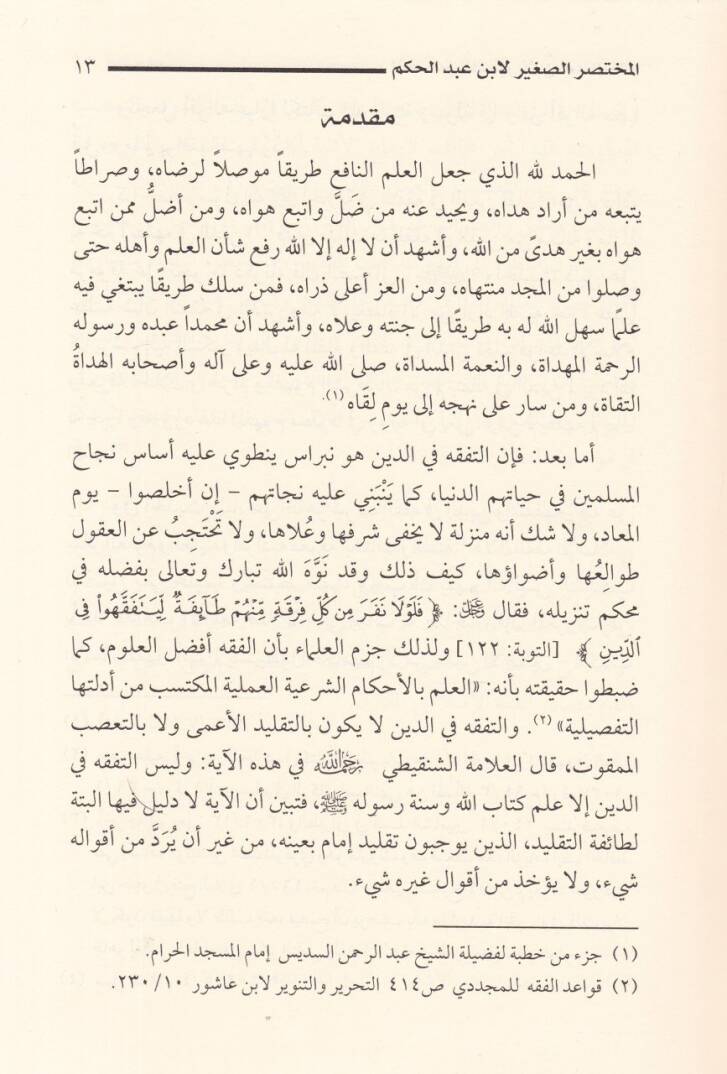 المختصر الصغير لابن عبد الحكم ١٣
مقدمة
الحمد لله الذي جعل العلم النافع طريقاً موصلاً لرضاه، وصراطاً
يتبعه من أراد هداه، ويحيد عنه من ضَلَّ واتبع هواه، ومن أضلُّ ممن اتبع
هواه بغير هدىً من الله، وأشهد أن لا إله إلا الله رفع شأن العلم وأهله حتى
وصلوا من المجد منتهاه، ومن العز أعلى ذراه، فمن سلك طريقًا يبتغي فيه
علمًا سهل الله له به طريقًا إلى جنته وعلاه، وأشهد أن محمداً عبده ورسوله
الرحمة المهداة، والنعمة المسداة، صلى الله عليه وعلى آله وأصحابه الهداةُ
التقاة، ومن سار على نهجه إلى يومِ لِقَاه(١).
أما بعد: فإن التفقه في الدين هو نبراس ينطوي عليه أساس نجاح
المسلمين في حياتهم الدنيا، كما يَنْبَنِي عليه نجاتهم - إن أخلصوا - يوم
المعاد، ولا شك أنه منزلة لا يخفى شرفها وعُلاها، ولا تَحْتَجِبُ عن العقول
طوالِعُها وأضواؤها، كيف ذلك وقد نَوَّهَ الله تبارك وتعالى بفضله في
محكم تنزيله، فقال عز وجل: ﴿ فَلَوْلَا نَفَرَ مِن كُلِّ فِرْقَةٍ مِّنْهُمْ طَآئِفَةٌ لِّيَتَفَقَّهُوا۟ فِى
ٱلدِّينِ ﴾ [التوبة: ١٢٢] ولذلك جزم العلماء بأن الفقه أفضل العلوم، كما
ضبطوا حقيقته بأنه: «العلم بالأحكام الشرعية العملية المكتسب من أدلتها
التفصيلية»(٢). والتفقه في الدين لا يكون بالتقليد الأعمى ولا بالتعصب
الممقوت، قال العلامة الشنقيطي رحمه الله في هذه الآية: وليس التفقه في
الدين إلا علم كتاب الله وسنة رسوله ﷺ، فتبين أن الآية لا دليل فيها البتة
لطائفة التقليد، الذين يوجبون تقليد إمام بعينه، من غير أن يُرَدَّ من أقواله
شيء، ولا يؤخذ من أقوال غيره شيء.
(١) جزء من خطبة لفضيلة الشيخ عبد الرحمن السديس إمام المسجد الحرام.
(٢) قواعد الفقه للمجددي ص٤١٤ التحرير والتنوير لابن عاشور ١٠/ ٢٣٠.